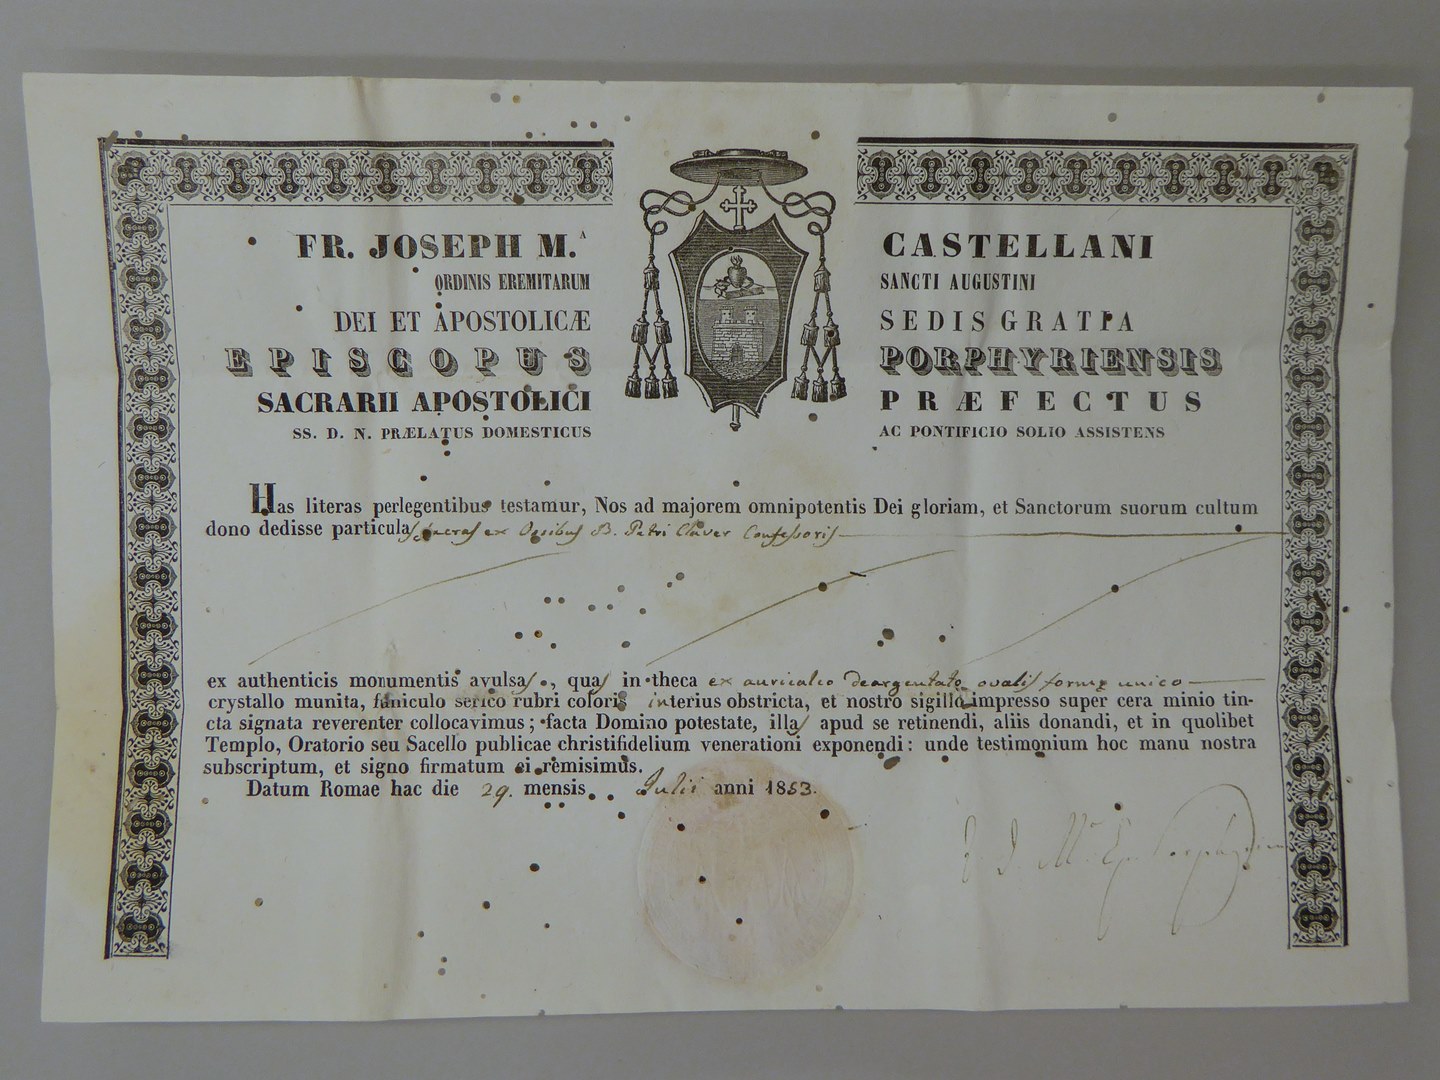 FR. JOSEPH M.ᴬ CASTELLANI
ORDINIS EREMITARUM SANCTI AUGUSTINI
DEI ET APOSTOLICÆ SEDIS GRATIA
EPISCOPUS PORPHYRIENSIS
SACRARII APOSTOLICI PRÆFECTUS
SS. D. N. PRÆLATUS DOMESTICUS AC PONTIFICIO SOLIO ASSISTENS
Has literas perlegentibus testamur, Nos ad majorem omnipotentis Dei gloriam, et Sanctorum suorum cultum
dono dedisse particulas sacras ex Ossibus B. Petri Claver Confessoris
ex authenticis monumentis avulsas, quas in theca ex auricalco deargentato ovalis formæ unico
crystallo munita, funiculo serico rubri coloris interius obstricta, et nostro sigillo impresso super cera minio tin-
cta signata reverenter collocavimus; facta Domino potestate, illas apud se retinendi, aliis donandi, et in quolibet
Templo, Oratorio seu Sacello publicae christifidelium venerationi exponendi: unde testimonium hoc manu nostra
subscriptum, et signo firmatum ei remisimus.
Datum Romae hac die 29. mensis Julii anni 1853.